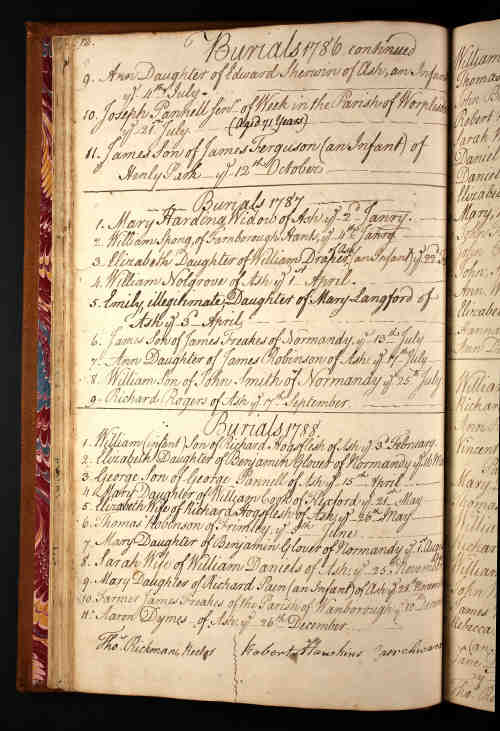 Burials 1786 continued
9. Ann Daughter of Edward Sherwin of Ash, an Infant
ye 4th July
10. Joseph Pannell Senr. of Week in the Parish of Worplesdon
ye 21 July (Aged 71 Years)
11. James Son of James Ferguson (an Infant) of
Henly Park ye 12th October
Burials 1787
1. Mary Harding Widow of Ash ye 2d Janry.
2. William Spong, of Farnborough Hants, ye 4th Janry
3. Elizabeth Daughter of William Draper of Ash (an Infant) ye 22
4. William Nolgrove of Ash ye 1st April.
5. Emily, illegitimate Daughter of Mary Langford of
Ash ye 5 April
6. James Son of James Freakes of Normandy, ye 13th July
7. Ann Daughter of James Robinson of Ash ye 17th July
8. William Son of John Smith of Normandy ye 25th July
9. Richard Rogers of Ash ye 17th September
Burials 1788
1. William (infant) Son of Richard Hogsflesh of Ash ye 3d February.
2. Elizabeth Daughter of Benjamin Glover of Normandy ye
3. George Son of George Pannell of Ash ye 15th April
4. Mary Daughter of William Cook of ye 21 May
5. Elizabeth Wife of Richard Hogsflesh of Ash, ye 26th May
6. Thomas Robinson of Frimley, ye June
7. Mary Daughter of Benjamin Glover of Normandy ye
8. Sarah Wife of William Daniels of Ash ye 25th Novembr
9. Mary Daughter of Richard Pain (an Infant) of Ash ye 28th Novem
10. Farmer James Freakes of the Parish of Wanborough ye 10 Decem
11. Aaron Dymes of Ash ye 26th December
Thos. Rickman, Rector Robert Hawkins
William
Thomas
John
Robert
Sarah
Daniel
Daniel
Elizabe
Mary
John
John
John
Ann
Elizabe